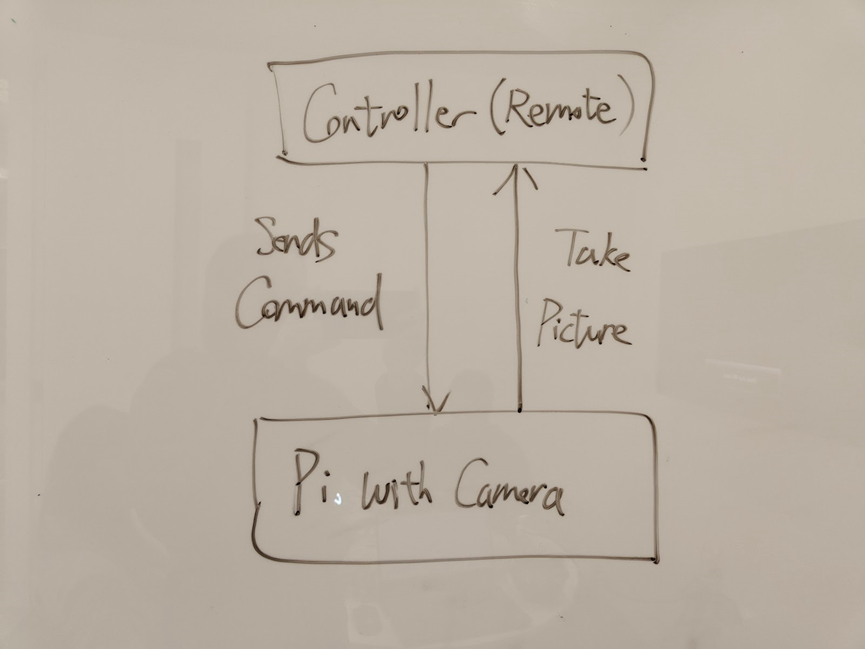 Controller (Remote)
Sends
Command
Take
Picture
Pi with Camera